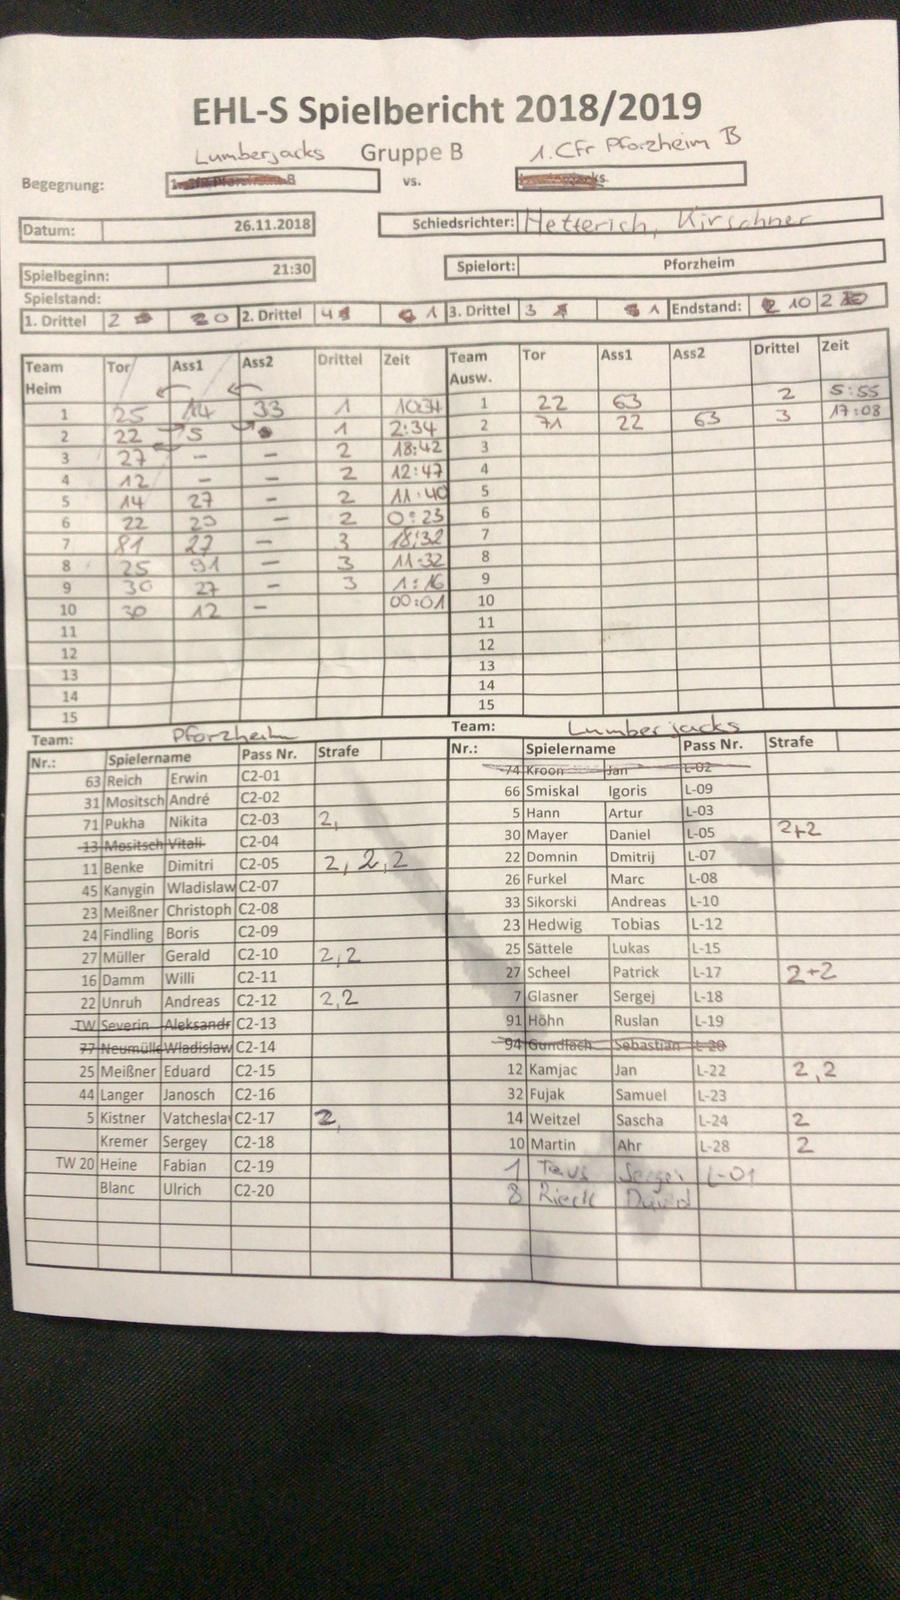 EHL-S Spielbericht 2018/2019
Lumberjacks Gruppe B 1. Cfr Pforzheim B
Begegnung: vs.
Datum: 26.11.2018 Schiedsrichter: Hetterich, Kirschner
Spielbeginn: 21:30 Spielort: Pforzheim
Spielstand:
1. Drittel 2 0 2. Drittel 4 1 3. Drittel 3 1 Endstand: 10 2
Team Heim Tor Ass1 Ass2 Drittel Zeit Team Ausw. Tor Ass1 Ass2 Drittel Zeit
1 25 14 33 1 10:34 1 22 63 2 5:55
2 22 5 1 2:34 2 71 22 63 3 17:08
3 27 - - 2 18:42 3
4 12 - - 2 12:47 4
5 14 27 - 2 11:40 5
6 22 - 2 0:23 6
7 81 27 - 3 18:32 7
8 25 91 - 3 11:32 8
9 30 27 - 3 1:16 9
10 30 12 - 00:01 10
11 11
12 12
13 13
14 14
15 15
Team: Pforzheim Team: Lumberjacks
Nr.: Spielername Pass Nr. Strafe Nr.: Spielername Pass Nr. Strafe
63 Reich Erwin C2-01 74 Kroon Jan L-02
31 Mositsch André C2-02 66 Smiskal Igoris L-09
71 Pukha Nikita C2-03 2, 5 Hann Artur L-03
13 Mositsch Vitali C2-04 30 Mayer Daniel L-05 2+2
11 Benke Dimitri C2-05 2, 2, 2 22 Domnin Dmitrij L-07
45 Kanygin Wladislaw C2-07 26 Furkel Marc L-08
23 Meißner Christoph C2-08 33 Sikorski Andreas L-10
24 Findling Boris C2-09 23 Hedwig Tobias L-12
27 Müller Gerald C2-10 2,2 25 Sättele Lukas L-15
16 Damm Willi C2-11 27 Scheel Patrick L-17 2+2
22 Unruh Andreas C2-12 2,2 7 Glasner Sergej L-18
TW Severin Aleksandr C2-13 91 Höhn Ruslan L-19
77 Neumülle Wladislaw C2-14 94 Gundlach Sebastian L-20
25 Meißner Eduard C2-15 12 Kamjac Jan L-22 2,2
44 Langer Janosch C2-16 32 Fujak Samuel L-23
5 Kistner Vatchesla C2-17 2, 14 Weitzel Sascha L-24 2
Kremer Sergey C2-18 10 Martin Ahr L-28 2
TW 20 Heine Fabian C2-19 1 L-01
Blanc Ulrich C2-20 8 David